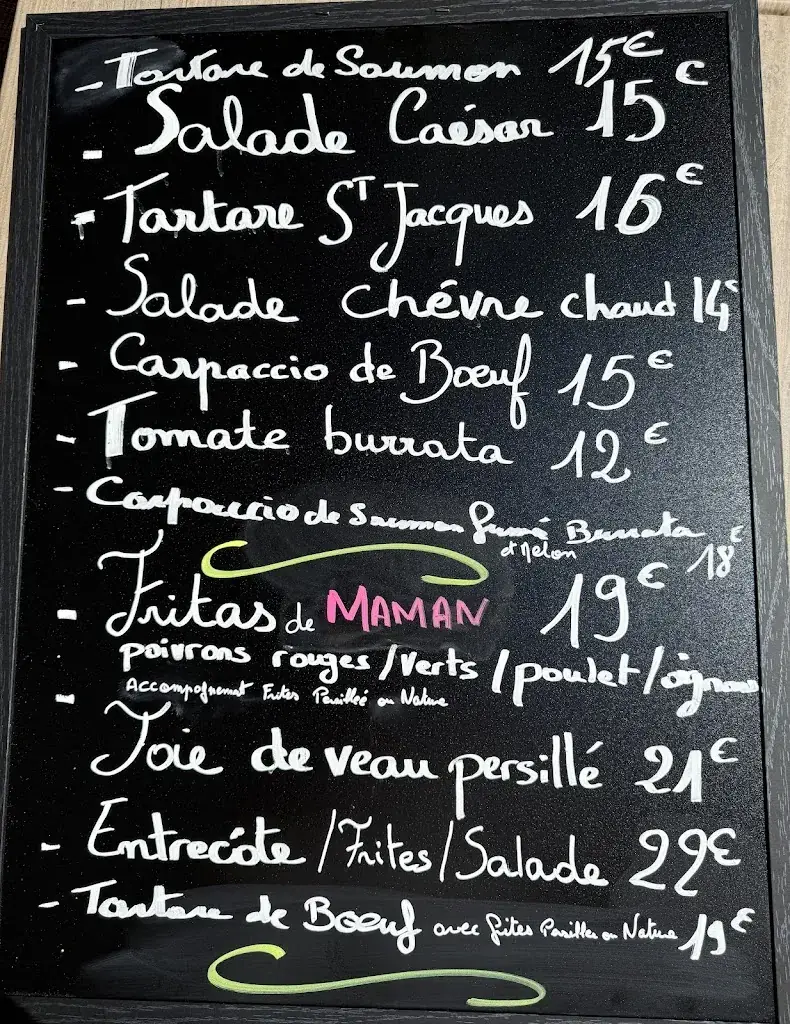 - Tartare de Saumon 15€
- Salade Caésar 15€
- Tartare St Jacques 16€
- Salade chévre chaud 14€
- Carpaccio de Bœuf 15€
- Tomate burrata 12€
- Carpaccio de Saumon fumé Burrata
et Melon 18€
- Fritas de MAMAN 19€
poivrons rouges/verts/poulet/oignons
Accompagnement Frites Persillé ou Nature
- Foie de veau persillé 21€
- Entrecôte/Frites/Salade 22€
- Tartare de Bœuf avec frites Persillés ou Nature 19€